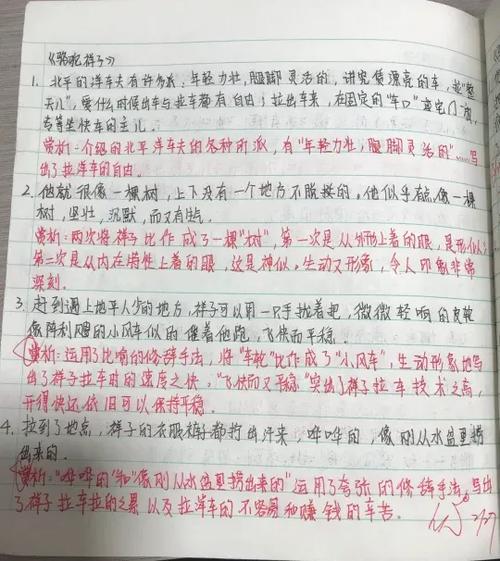 《骆驼祥子》
1. 北平的洋车夫有许多派：年轻力壮，腿脚灵活的，讲究赁漂亮的车，拉“整
天儿”，爱什么时候出车与收车都有自由；拉出车来，在固定的“车口”或宅门一放，
专等坐快车的主儿。
赏析：介绍的北平洋车夫的各种所派，有“年轻力壮，腿脚灵活的”……写
出了拉洋车的自由。
2. 他就很像一棵树，上下没有一个地方不挺拔的。他似乎有点像一棵
树，坚壮，沉默，而又有生气。
赏析：两次将祥子比作成了一棵“树”，第一次是从外形上着的眼，是形似；
第二次是从内在特性上着的眼，这是神似，生动又形象，令人印象非常
深刻。
3. 赶到遇上地平人少的地方，祥子可以用一只手拢着把，微微轻响的皮轮
像阵利飕的小风车似的催着他跑，飞快而平稳。
赏析：运用了比喻的修辞手法，将“车轮”比作成了“小风车”，生动形象地写
出了祥子拉车时的速度之快，“飞快而又平稳”突出了祥子拉车技术之高，
开得快还依旧可以保持平稳。
4. 拉到了地点，祥子的衣服裤子都拧出汗来，哗哗的，像刚从水盆里捞
出来的。
赏析：“哗哗的”和“像刚从水盆里捞出来的”运用了夸张的修辞手法，写出
了祥子拉车拉的之累以及拉洋车的不容易和赚钱的辛苦。